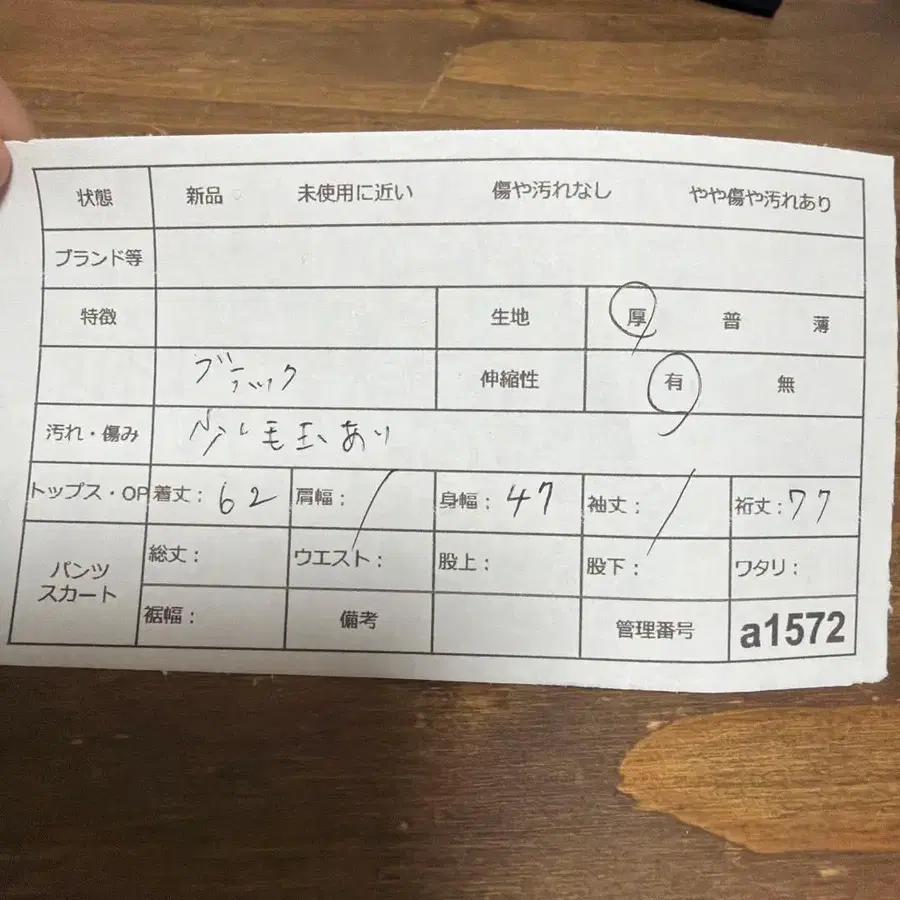 状態 新品 未使用に近い 傷や汚れなし やや傷や汚れあり
ブランド等
特徴 生地 厚 普 薄
ブラック 伸縮性 有 無
汚れ・傷み 少し毛玉あり
トップス・OP 着丈：62 肩幅：/ 身幅：47 袖丈：/ 裄丈：77
パンツ スカート 総丈： ウエスト： 股上： 股下： ワタリ：
裾幅： 備考 管理番号 a1572